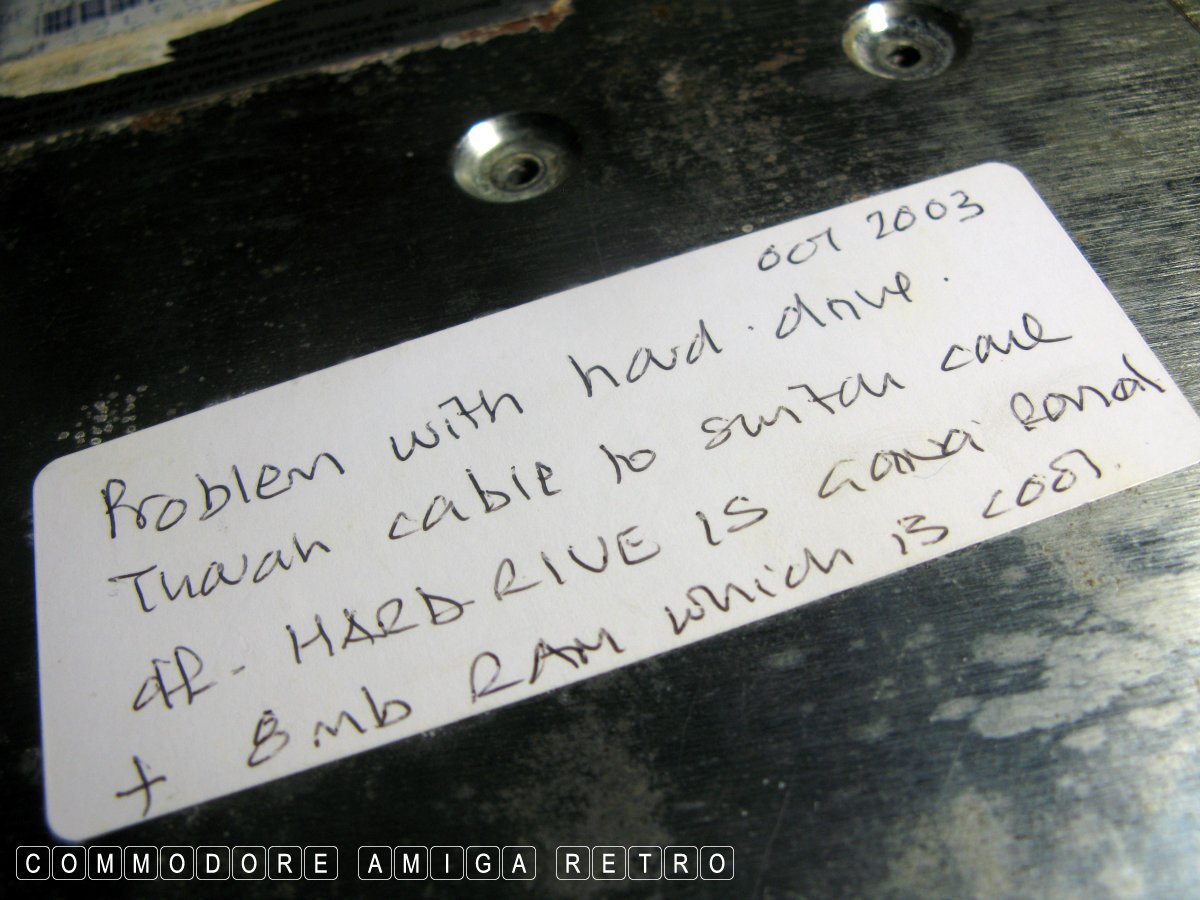 OCT 2003
Problem with hard drive.
Though cable to switch case
off - HARD DRIVE IS
+ 8mb RAM which is cool.
COMMODORE AMIGA RETRO